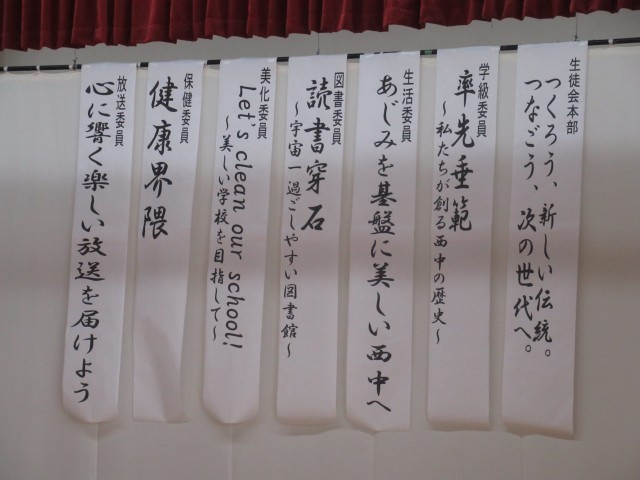 生徒会本部
つくろう、新しい伝統。
つなごう、次の世代へ。
学級委員
率先垂範
～私たちが創る西中の歴史～
生活委員
あじみを基盤に美しい西中へ
図書委員
読書穿石
～宇宙一過ごしやすい図書館～
美化委員
Let's clean our school!
～美しい学校を目指して～
保健委員
健康界隈
放送委員
心に響く楽しい放送を届けよう